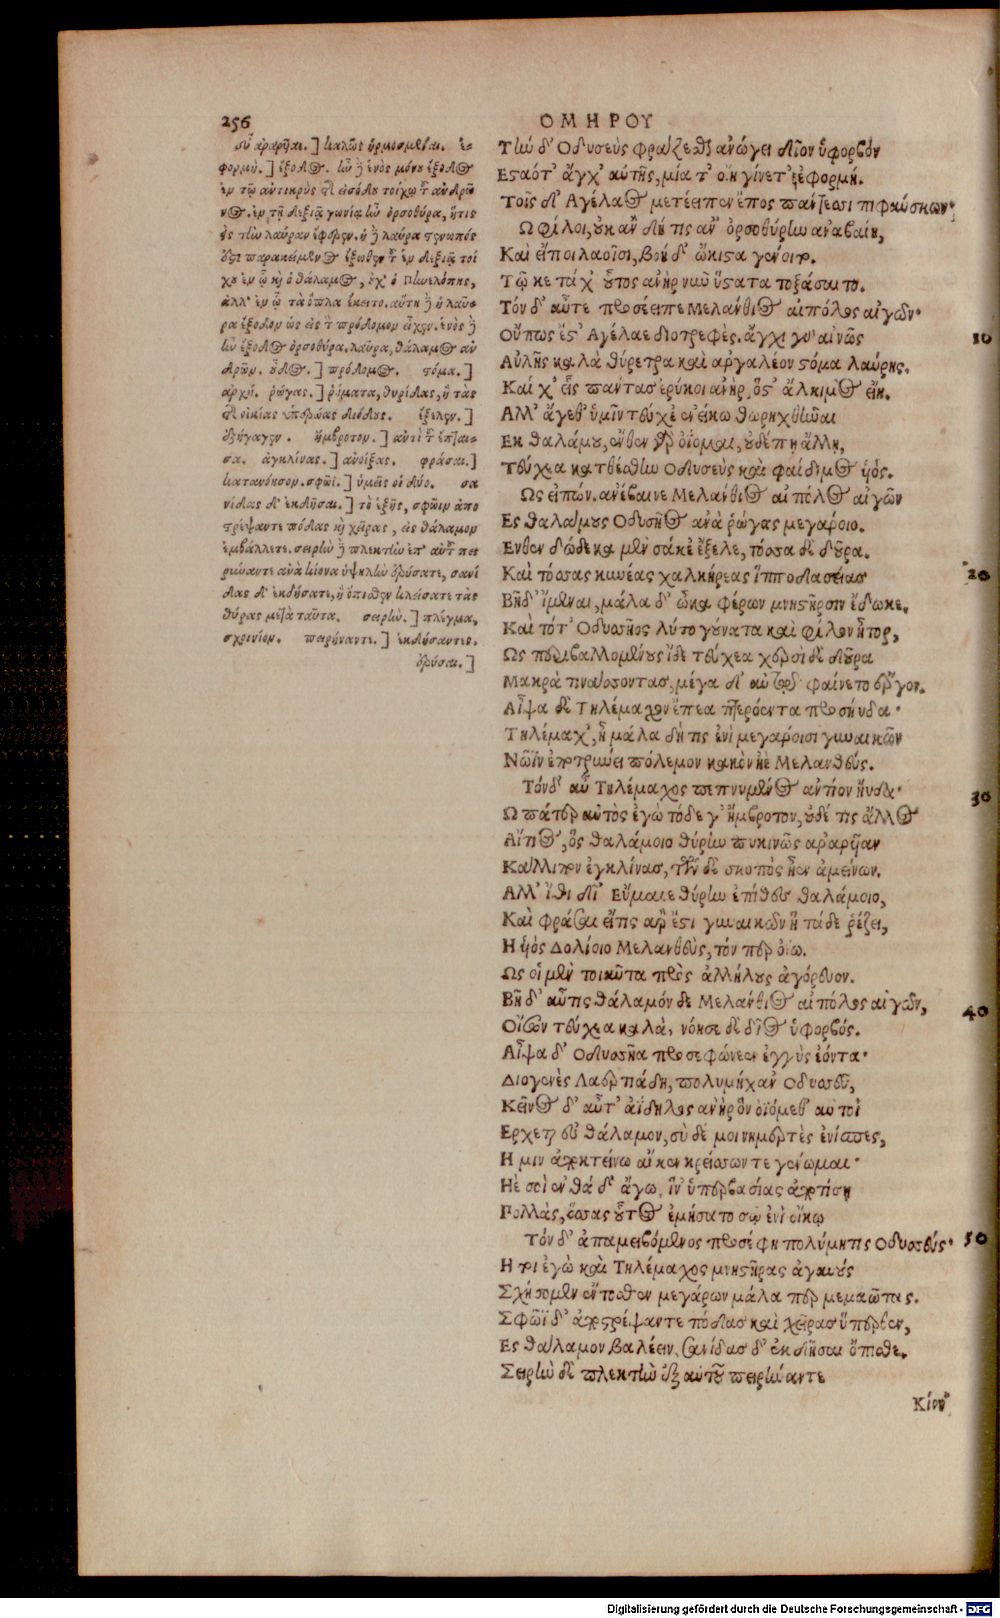 256
ΟΜΗΡΟΥ
σὺ ἀραρῆαι.] καλῶς ἡρμοσμέναι. ἐ-
φορμή.] ἔξοδος. ἦν ἢ ἑνὸς μόνου ἔξοδος
ἐν τῷ ἀντικρὺς τῆς εἰσόδου τοίχῳ τ ἀνδρώ
νος. ἐν τῇ δεξιᾷ γωνίᾳ ἦν ὀρσοθύρα, ἥτις
εἰς τὴν λαύραν ἔφερεν. ἡ ἢ λαύρα στενωπός
ὅστι παρακείμενος ἔξωθεν τ ἐν δεξιᾷ τοί
χου ἐν ᾧ καὶ ὁ θάλαμος, οὐχ' ὁ Πηνελόπης,
ἀλλ' ἐν ᾧ τὰ ὅπλα ἔκειτο. αὕτη ἢ ἡ λαύ-
ρα ἔξοδον ὡς εἰς τ πρόδομον εἶχεν. ἑνὸς ἢ
ἦν ἔξοδος ὀρσοθύρα. λαύρα, θάλαμος ἀν
δρῶν. ὁδός.] πρόδομος. στόμα.]
ἀρχή. ῥῶγας.] ῥήματα, θυρίδας, ἢ τὰς
τῆς οἰκίας ὑπερώας διόδους. ἔξελεν.]
ἐξήγαγεν. ἤμβροτον.] ἀντὶ τ ἔπται-
σα. ἀγκλίνας.] ἀνοίξας. φράσαι.]
κατανόησον. σφῶϊ.] ὑμεῖς οἱ δύο. σα
νίδας δ' ἐκδῆσαι.] τὸ ἑξῆς, σφῶιν ἀπο
στρέψαντε πόδας καὶ χεῖρας, εἰς θάλαμον
ἐμβάλλετε. σειρὴν ἢ πλεκτὴν ἐπ' αὐτ πει
ρήναντε ἀνὰ κίονα ὑψηλὴν ἐρύσατε, σανί
δας δ' ἐκδήσατε, ἢ ὄπισθεν κλείσατε τὰς
θύρας μετὰ ταῦτα. σειρήν.] πλέγμα,
σχοινίον. πειρήναντε.] ἐκδύσαντες.
ἐρύσαι.]
Τὴν δ' Οδυσεὺς φράζεσθαι ἀνώγει δῖον ὑφορβὸν
Εσταότ' ἄγχ' αὐτῆς, μία τ' οἴη γίνετ' ἐφορμή.
Τοῖς δ' Αγέλαος μετέειπεν ἔπος πάντεσσι πιφαύσκων·
Ω φίλοι, οὐκ ἂν δή τις ἀν' ὀρσοθύρην ἀναβαίη,
Καὶ εἴποι λαοῖσι, βοὴ δ' ὤκιστα γένοιτο.
Τῷ κε τάχ' οὗτος ἀνὴρ νῦν ὕστατα τοξάσαιτο.
Τὸν δ' αὖτε προσέειπε Μελάνθιος αἰπόλος αἰγῶν·
Οὔπως ἔστ' Αγέλαε διοτρεφὲς. ἄγχι γὰρ αἰνῶς
10
Αὐλῆς καλὰ θύρετρα καὶ ἀργαλέον στόμα λαύρης.
Καί χ' εἷς πάντας ἐρύκοι ἀνὴρ, ὅς τ' ἄλκιμος εἴη.
Αλλ' ἄγεθ' ὑμῖν τεύχε' ἐνείκω θωρηχθῆναι
Εκ θαλάμου, ἔνθεν γὰρ ὀίομαι, οὐδέ πη ἄλλη,
Τεύχεα κατθέσθην Οδυσεὺς καὶ φαίδιμος υἱός.
Ως εἰπὼν, ἀνέβαινε Μελάνθιος αἰπόλος αἰγῶν
Ες θαλάμους Οδυσῆος ἀνὰ ῥῶγας μεγάροιο.
Ενθεν δώδεκα μὲν σάκε' ἔξελε, τόσσα δὲ δοῦρα.
Καὶ τόσσας κυνέας χαλκήρεας ἱπποδασείας
20
Βῆ δ' ἴμεναι, μάλα δ' ὦκα φέρων μνηστῆρσιν ἔδωκε.
Καὶ τότ' Οδυσσῆος λύτο γούνατα καὶ φίλον ἦτορ,
Ως περιβαλλομένους ἴδε τεύχεα χερσὶ δὲ δοῦρα
Μακρὰ τινάσσοντας, μέγα δ' αὐτῷ φαίνετο ἔργον.
Αἶψα δὲ Τηλέμαχον ἔπεα πτερόεντα προσηύδα·
Τηλέμαχ', ἦ μάλα δή τις ἐνὶ μεγάροισι γυναικῶν
Νῶϊν ἐποτρύνει πόλεμον κακὸν ἠὲ Μελανθεύς.
Τὸν δ' αὖ Τηλέμαχος πεπνυμένος ἀντίον ηὔδα·
30
Ω πάτερ αὐτὸς ἐγὼ τόδε γ' ἤμβροτον, οὐδέ τις ἄλλος
Αἴτιος, ὃς θαλάμοιο θύρην πυκινῶς ἀραρῆαν
Κάλλιπον ἐγκλίνας, τῶν δὲ σκοπὸς ἦεν ἀμείνων.
Αλλ' ἴθι δῖ' Εὔμαιε θύρην ἐπίθες θαλάμοιο,
Καὶ φράσαι εἴ τις ἄρ' ἐστὶ γυναικῶν ἣ τάδε ῥέζει,
Η υἱὸς Δολίοιο Μελανθεὺς, τόν περ ὀίω.
Ως οἱ μὲν τοιαῦτα πρὸς ἀλλήλους ἀγόρευον.
Βῆ δ' αὖτις θάλαμόνδε Μελάνθιος αἰπόλος αἰγῶν,
40
Οἴσων τεύχεα καλά, νόησε δὲ δῖος ὑφορβός.
Αἶψα δ' Οδυσσῆα προσεφώνεεν ἐγγὺς ἐόντα·
Διογενὲς Λαερτιάδη, πολυμήχαν' Οδυσσεῦ,
Κεῖνος δ' αὖτ' ἀΐδηλος ἀνὴρ ὃν ὀϊόμεθ' αὐτοὶ
Ερχεται ἐς θάλαμον, σὺ δέ μοι νημερτὲς ἐνίσπες,
Η μιν ἀποκτείνω αἴ κεν κρείσσων γε γένωμαι·
Ηέ σοὶ ἐνθάδ' ἄγω, ἵν' ὑπερβασίας ἀποτίσῃ
Πολλὰς, ὅσσας οὗτος ἐμήσατο σῷ ἐνὶ οἴκῳ
Τὸν δ' ἀπαμειβόμενος προσέφη πολύμητις Οδυσσεύς·
50
Η τοι ἐγὼ καὶ Τηλέμαχος μνηστῆρας ἀγαυοὺς
Σχήσομεν ἔντοσθεν μεγάρων μάλα περ μεμαῶτας.
Σφῶϊ δ' ἀποστρέψαντε πόδας καὶ χεῖρας ὕπερθεν,
Ες θάλαμον βαλέειν, σανίδας δ' ἐκδῆσαι ὄπισθε.
Σειρὴν δὲ πλεκτὴν ἐξ αὐτοῦ πειρήναντε
Κίον'
Digitalisierung gefördert durch die Deutsche Forschungsgemeinschaft - DFG